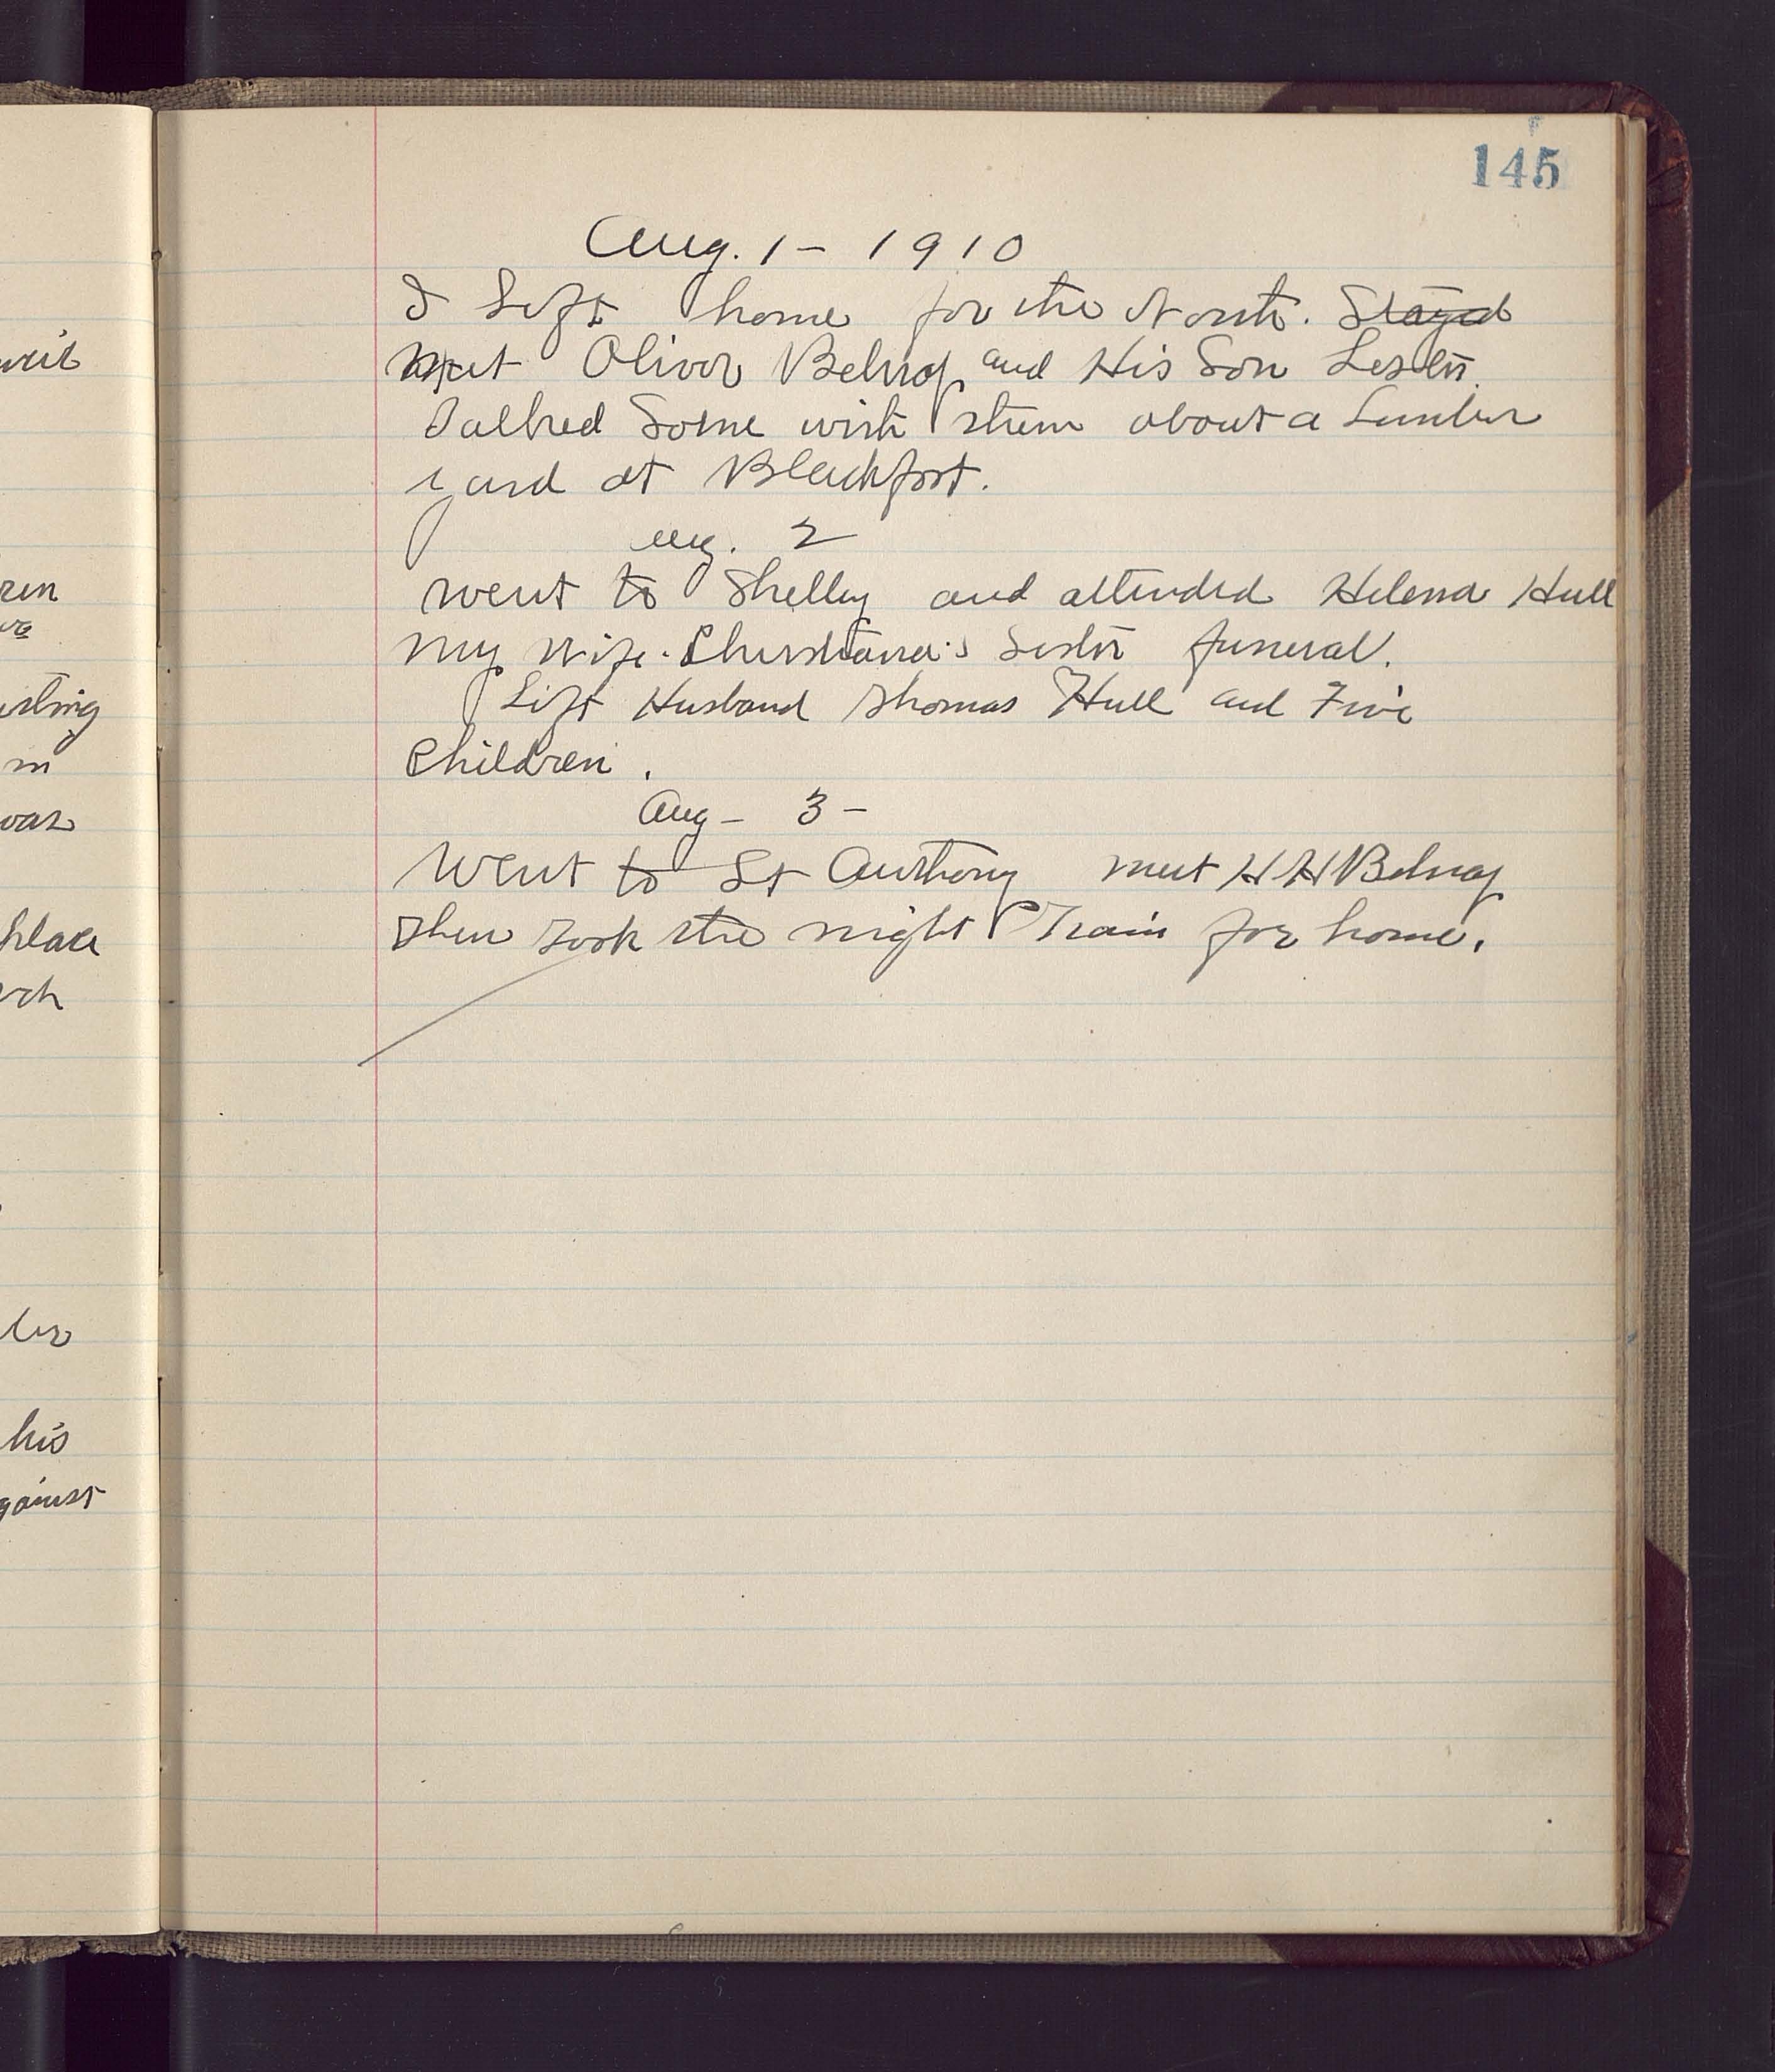 weib
ren
isting
m
was
place
his
gainst
145
Aug. 1 - 1910
I Left home for the North. Stayed
Met Oliver Belnap and His Son Lester.
Talked Some with them about a Lumber
yard at Blackfoot.
Aug. 2
went to Shelley and attended Helena Hull
my wife. Christiana's Sister funeral.
Left Husband Thomas Hull and Five
Children.
Aug - 3 -
Went to St Anthony meet H H Belnap
then took the night Train for home.